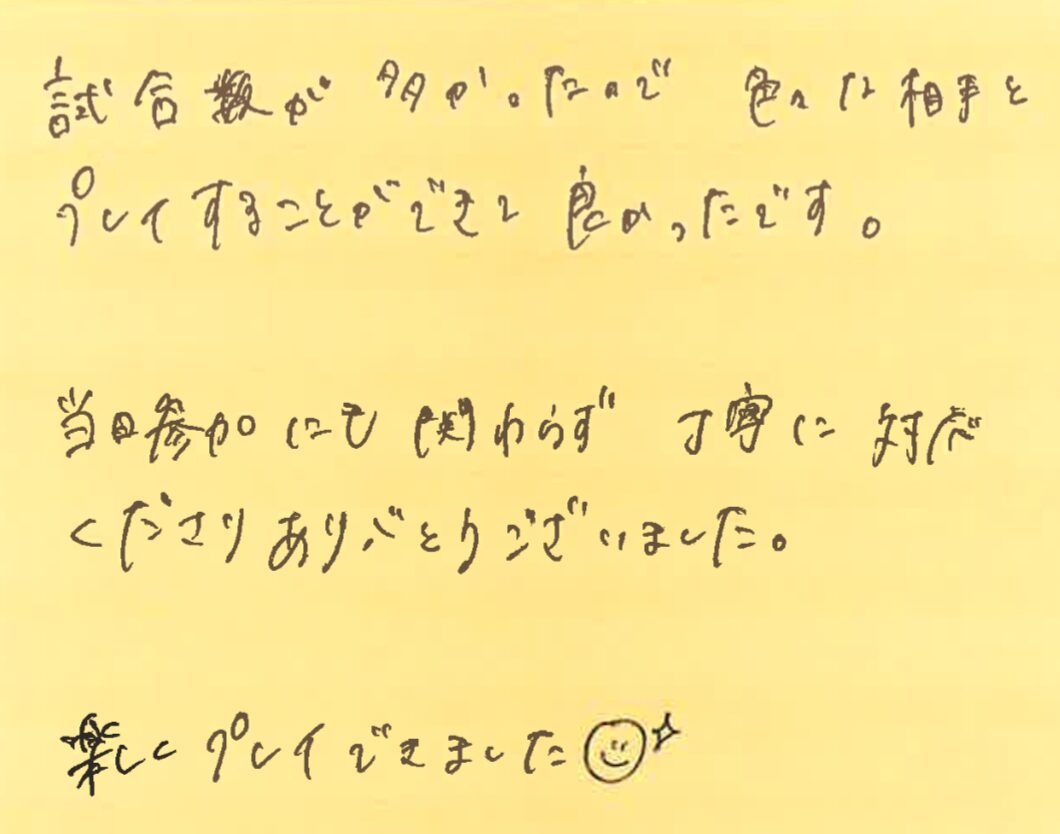 試合数が多かったので 色々な相手と
プレイすることができて良かったです。
当日参加にも関わらず 丁寧に対応
くださりありがとうございました。
楽しくプレイできました